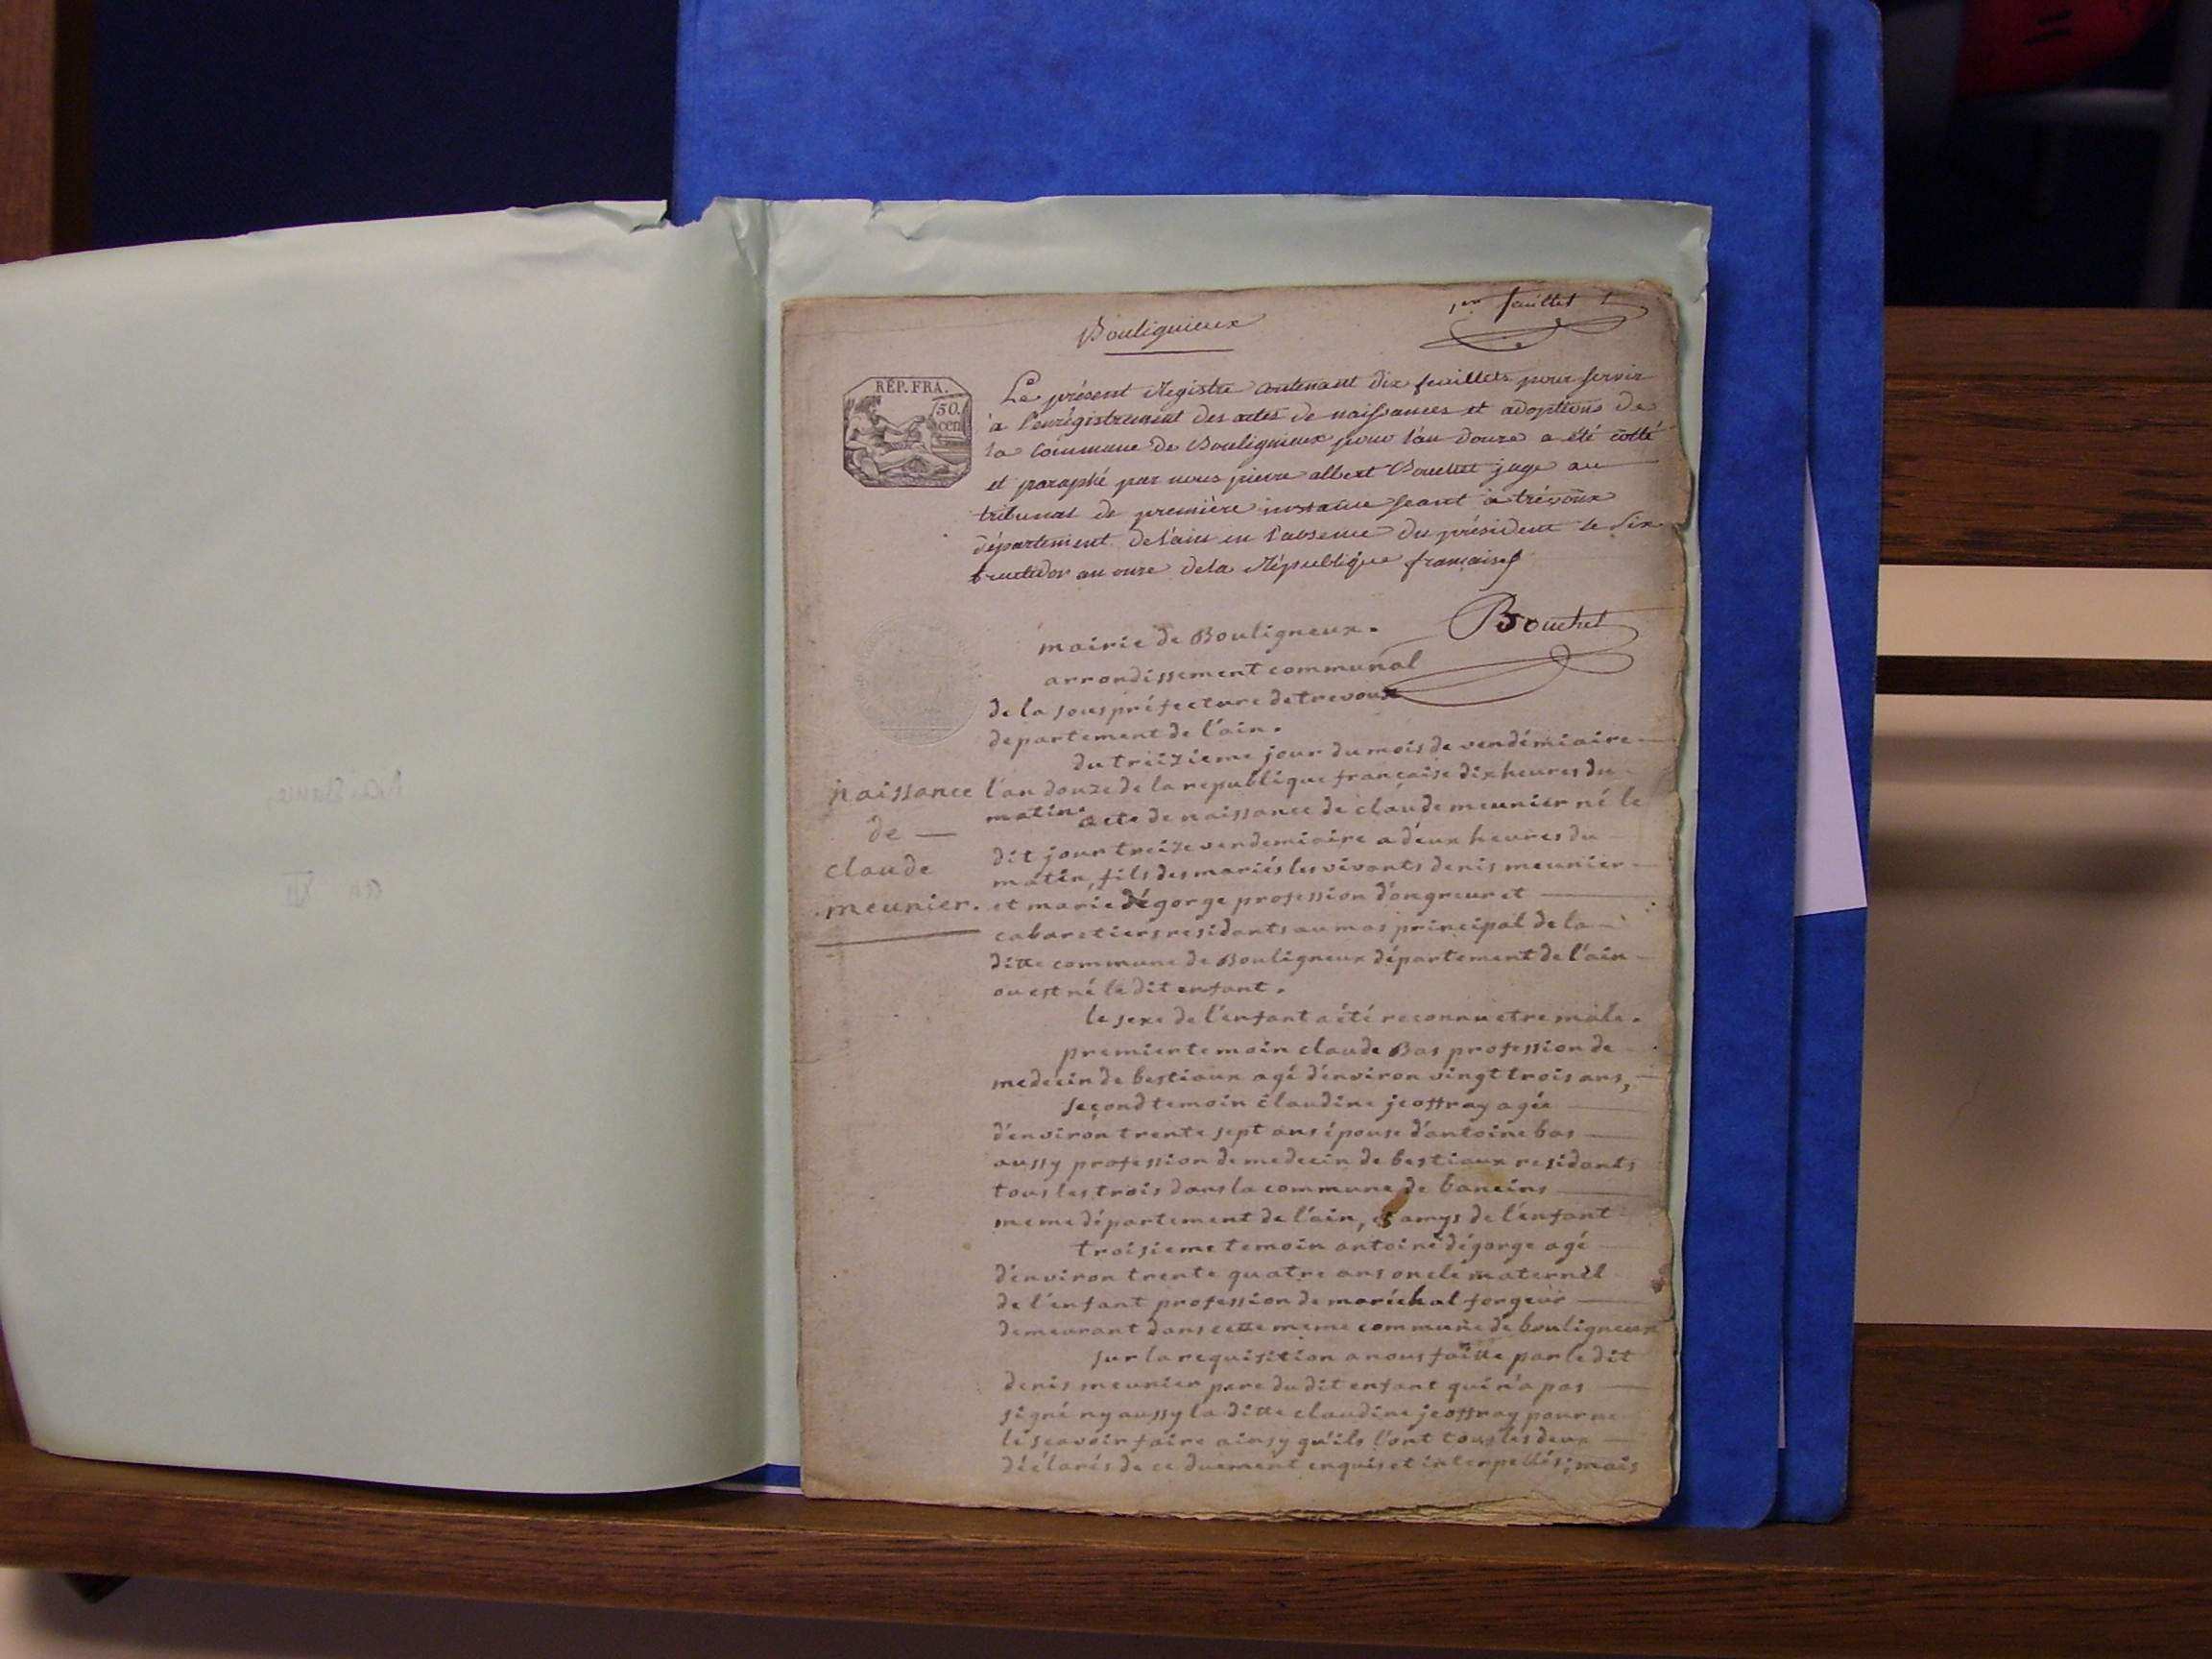 1er feuillet
Boulignieux
RÉP. FRA.
50.
cen
Le présent Registre contenant dix feuillets pour servir
à l'enrégistrement des actes de naissances et adoptions de
la Commune de Boulignieux pour l'an douze a été cotté
et paraphé par nous pierre albert Bouchet juge au
tribunal de première instance séant à trévoux
département de l'ain en l'absence du président le six
fructidor an onze de la République française
Bouchet
mairie de Bouligneux.
arrondissement communal
de la sous préfecture de trevoux
departement de l'ain.
du treizieme jour du mois de vendémiaire
l'an douze de la republique française dix heures du
matin. acte de naissance de claude meunier né le
dit jour treize vendemiaire a deux heures du
matin, fils des mariés les vivants denis meunier
et marie dégorge profession d'ongreur et
cabaretiers residants au mas principal de la
ditte commune de Bouligneux département de l'ain
ou est né le dit enfant.
naissance
de
claude
meunier.
le sexe de l'enfant a été reconnu etre male.
premier temoin claude Bas profession de
medecin de bestiaux agé d'environ vingt trois ans,
second temoin claudine jeoffray agée
d'environ trente sept ans épouse d'antoine bas
aussy profession de medecin de bestiaux residants
tous les trois dans la commune de baneins
meme département de l'ain, et amys de l'enfant
troisieme temoin antoine dégorge agé
d'environ trente quatre ans oncle maternel
de l'enfant profession de maréchal forgeur
demeurant dans cette meme commune de bouligneux
sur la requisition a nous faitte par le dit
denis meunier pere du dit enfant qui n'a pas
signé ny aussy la ditte claudine jeoffray pour ne
le scavoir faire ainsy qu'ils l'ont tous les deux
déclarés de ce duement enquis et interpellés; mais